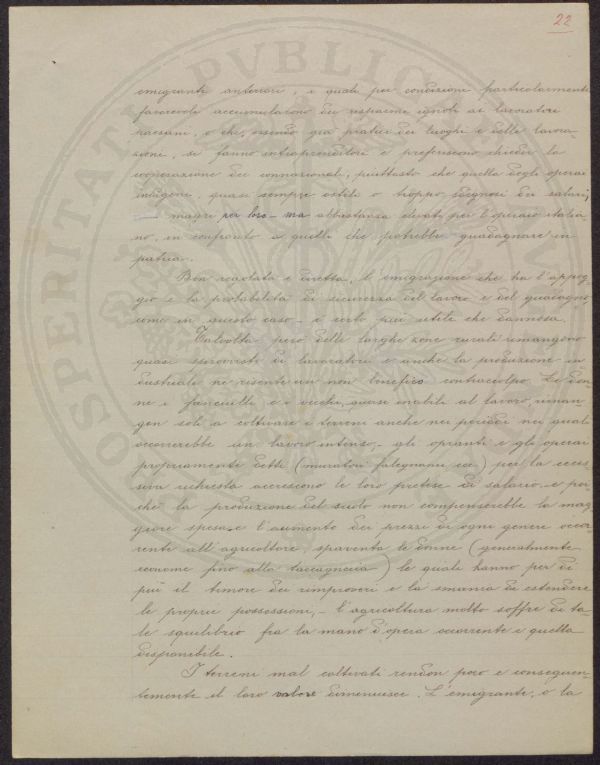 22
PROSPERITATI PVBLICAE
emigrante anteriori, i quali per condizione particolarmente
favorevoli accumularono dei risparmi ignoti ai lavoratori
paesani, e che, essendo già pratici dei luoghi e delle lavora-
zioni, si fanno intraprenditori e preferiscono chieder la
cooperazione dei connazionali, piuttosto che quella degli operai
indigeni, quasi sempre ostili e troppo sdegnosi dei salari,
magri per loro - ma abbastanza elevati per l'operaio italia
no, in confronto a quelli che potrebbe guadagnare in
patria.
Ben regolata e diretta, l'emigrazione che ha l'appog-
gio e la probabilità di sicurezza del lavoro e del guadagno
come in questo caso - è certo più utile che dannosa.
Talvolta però delle larghe zone rurali rimangono
quasi sprovviste di lavoratori e anche la produzione in
dustriale ne risente un non benefico contraccolpo. Le don-
ne i fanciulli e i vecchi, quasi inabili al lavoro, riman-
gon soli a coltivare i terreni anche nei periodi nei quali
occorrerebbe un lavoro intenso, - gli opranti e gli operai
propriamente detti (muratori falegnami ecc.) per la ecces-
siva richiesta accrescono le loro pretese di salario, e poi
che la produzione del suolo non compenserebbe la mag
giore spesa e l'aumento dei prezzi di ogni genere occor-
rente all'agricoltore, spaventa le donne (generalmente
econome fino alla taccagneria) le quali hanno per di
più il timore dei rimproveri e la smania di estendere
le proprie possessioni, - l'agricoltura molto soffre di ta-
le squilibrio fra la mano d'opera occorrente e quella
disponibile.
I terreni mal coltivati rendon poco e conseguen-
temente il loro valore diminuisce. L'emigrante, o la